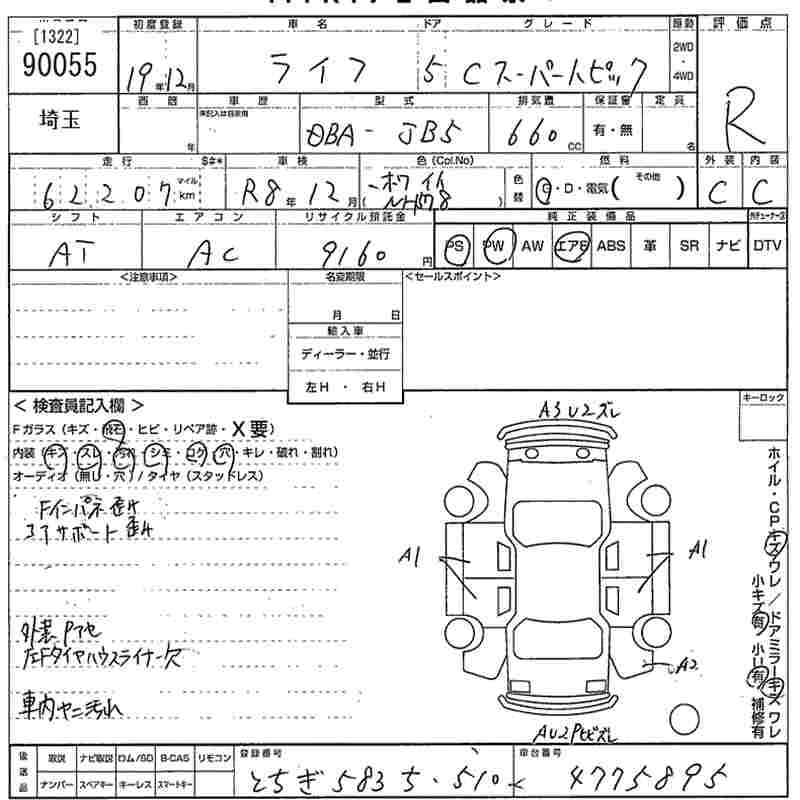 [1322]
90055
埼玉
初度登録 車名 ドア グレード 原動 評価点
19年12月 ライフ 5 Cスーパートピック 2WD・4WD R
西暦 車歴 型式 排気量 保証書 定員
年 DBA-JB5 660cc 有・無 名
走行 S#* 車検 色(Col.No) 燃料 外装 内装
62207 マイル km R8年12月 ホワイト 色替 G・D・電気(その他 ) C C
シフト エアコン リサイクル預託金 純正装備品
AT AC 9160円 PS PW AW エアB ABS 革 SR ナビ DTV
<注意事項> 名変期限 <セールスポイント>
月 日
輸入車
ディーラー・並行
左H・右H
キーロック
<検査員記入欄>
Fガラス(キズ・飛石・ヒビ・リペア跡・X要)
内装(キズ・スレ・汚れ・シミ・コゲ・穴・キレ・破れ・割れ)
オーディオ(無し・穴)/タイヤ(スタッドレス)
Fインパネ歪み
コアサポート歪み
外装Pアセ
左Fタイヤハウスライナー欠
車内ヤニ汚れ
A3U2ズレ
A1
A1
A2
AU2PヒビズレZ
ホイル・CPキズワレ/ドアミラーキズワレ
小キズ有 小U有 補修有
後送品 取説 ナビ取説 ロム/SD B-CAS リモコン 登録番号 車台番号
ナンバー スペアキー キーレス スマートキー とちぎ 583 ち・510 4775895